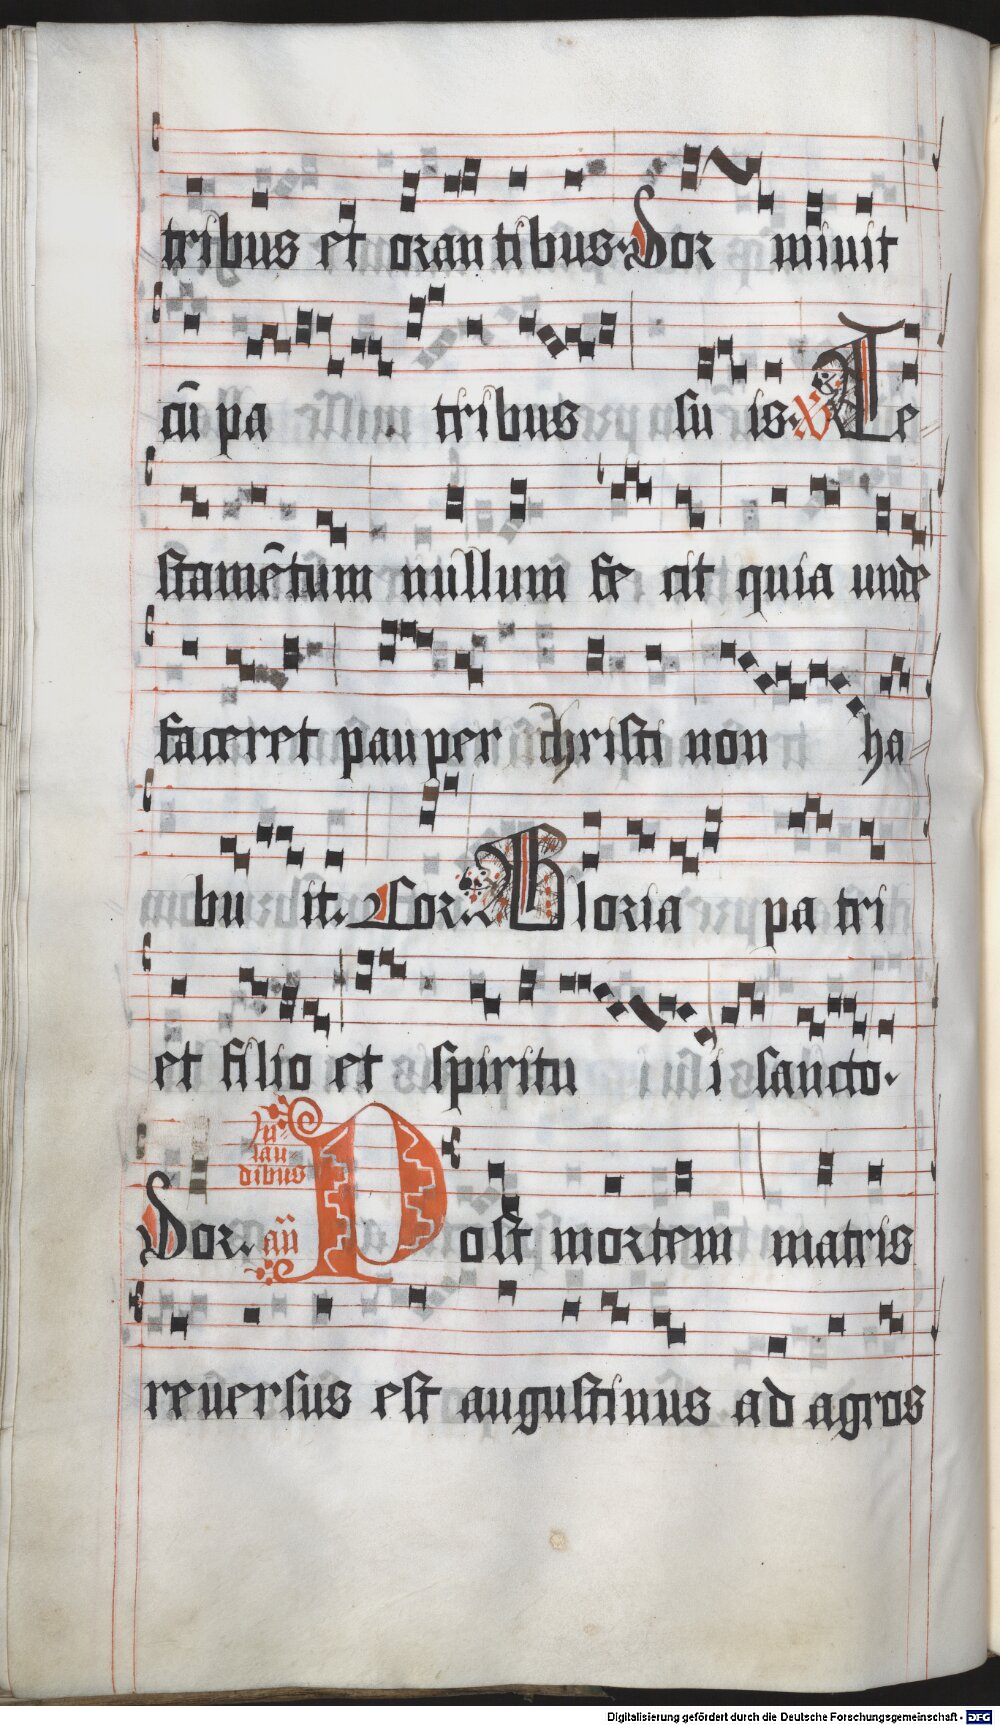 tribus et orantibus. Dor miuit
cū pa tribus su is. V Te
stamētum nullum fe cit quia unde
faceret pauper christi non ha
bu it. Cor. Gloria pa tri
et filio et spiritu i sancto.
In lau dibus
Dor. añ Post mortem matris
reuersus est augustinus ad agros
Digitalisierung gefördert durch die Deutsche Forschungsgemeinschaft - DFG